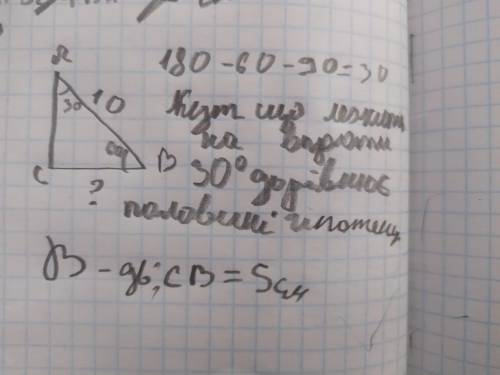 180-60-90=30
A
30 10
Кут що лежить
на впроти
60 B
30° дорівнює
C
?
половині гіпотенуз
В - дь; CB = 5см